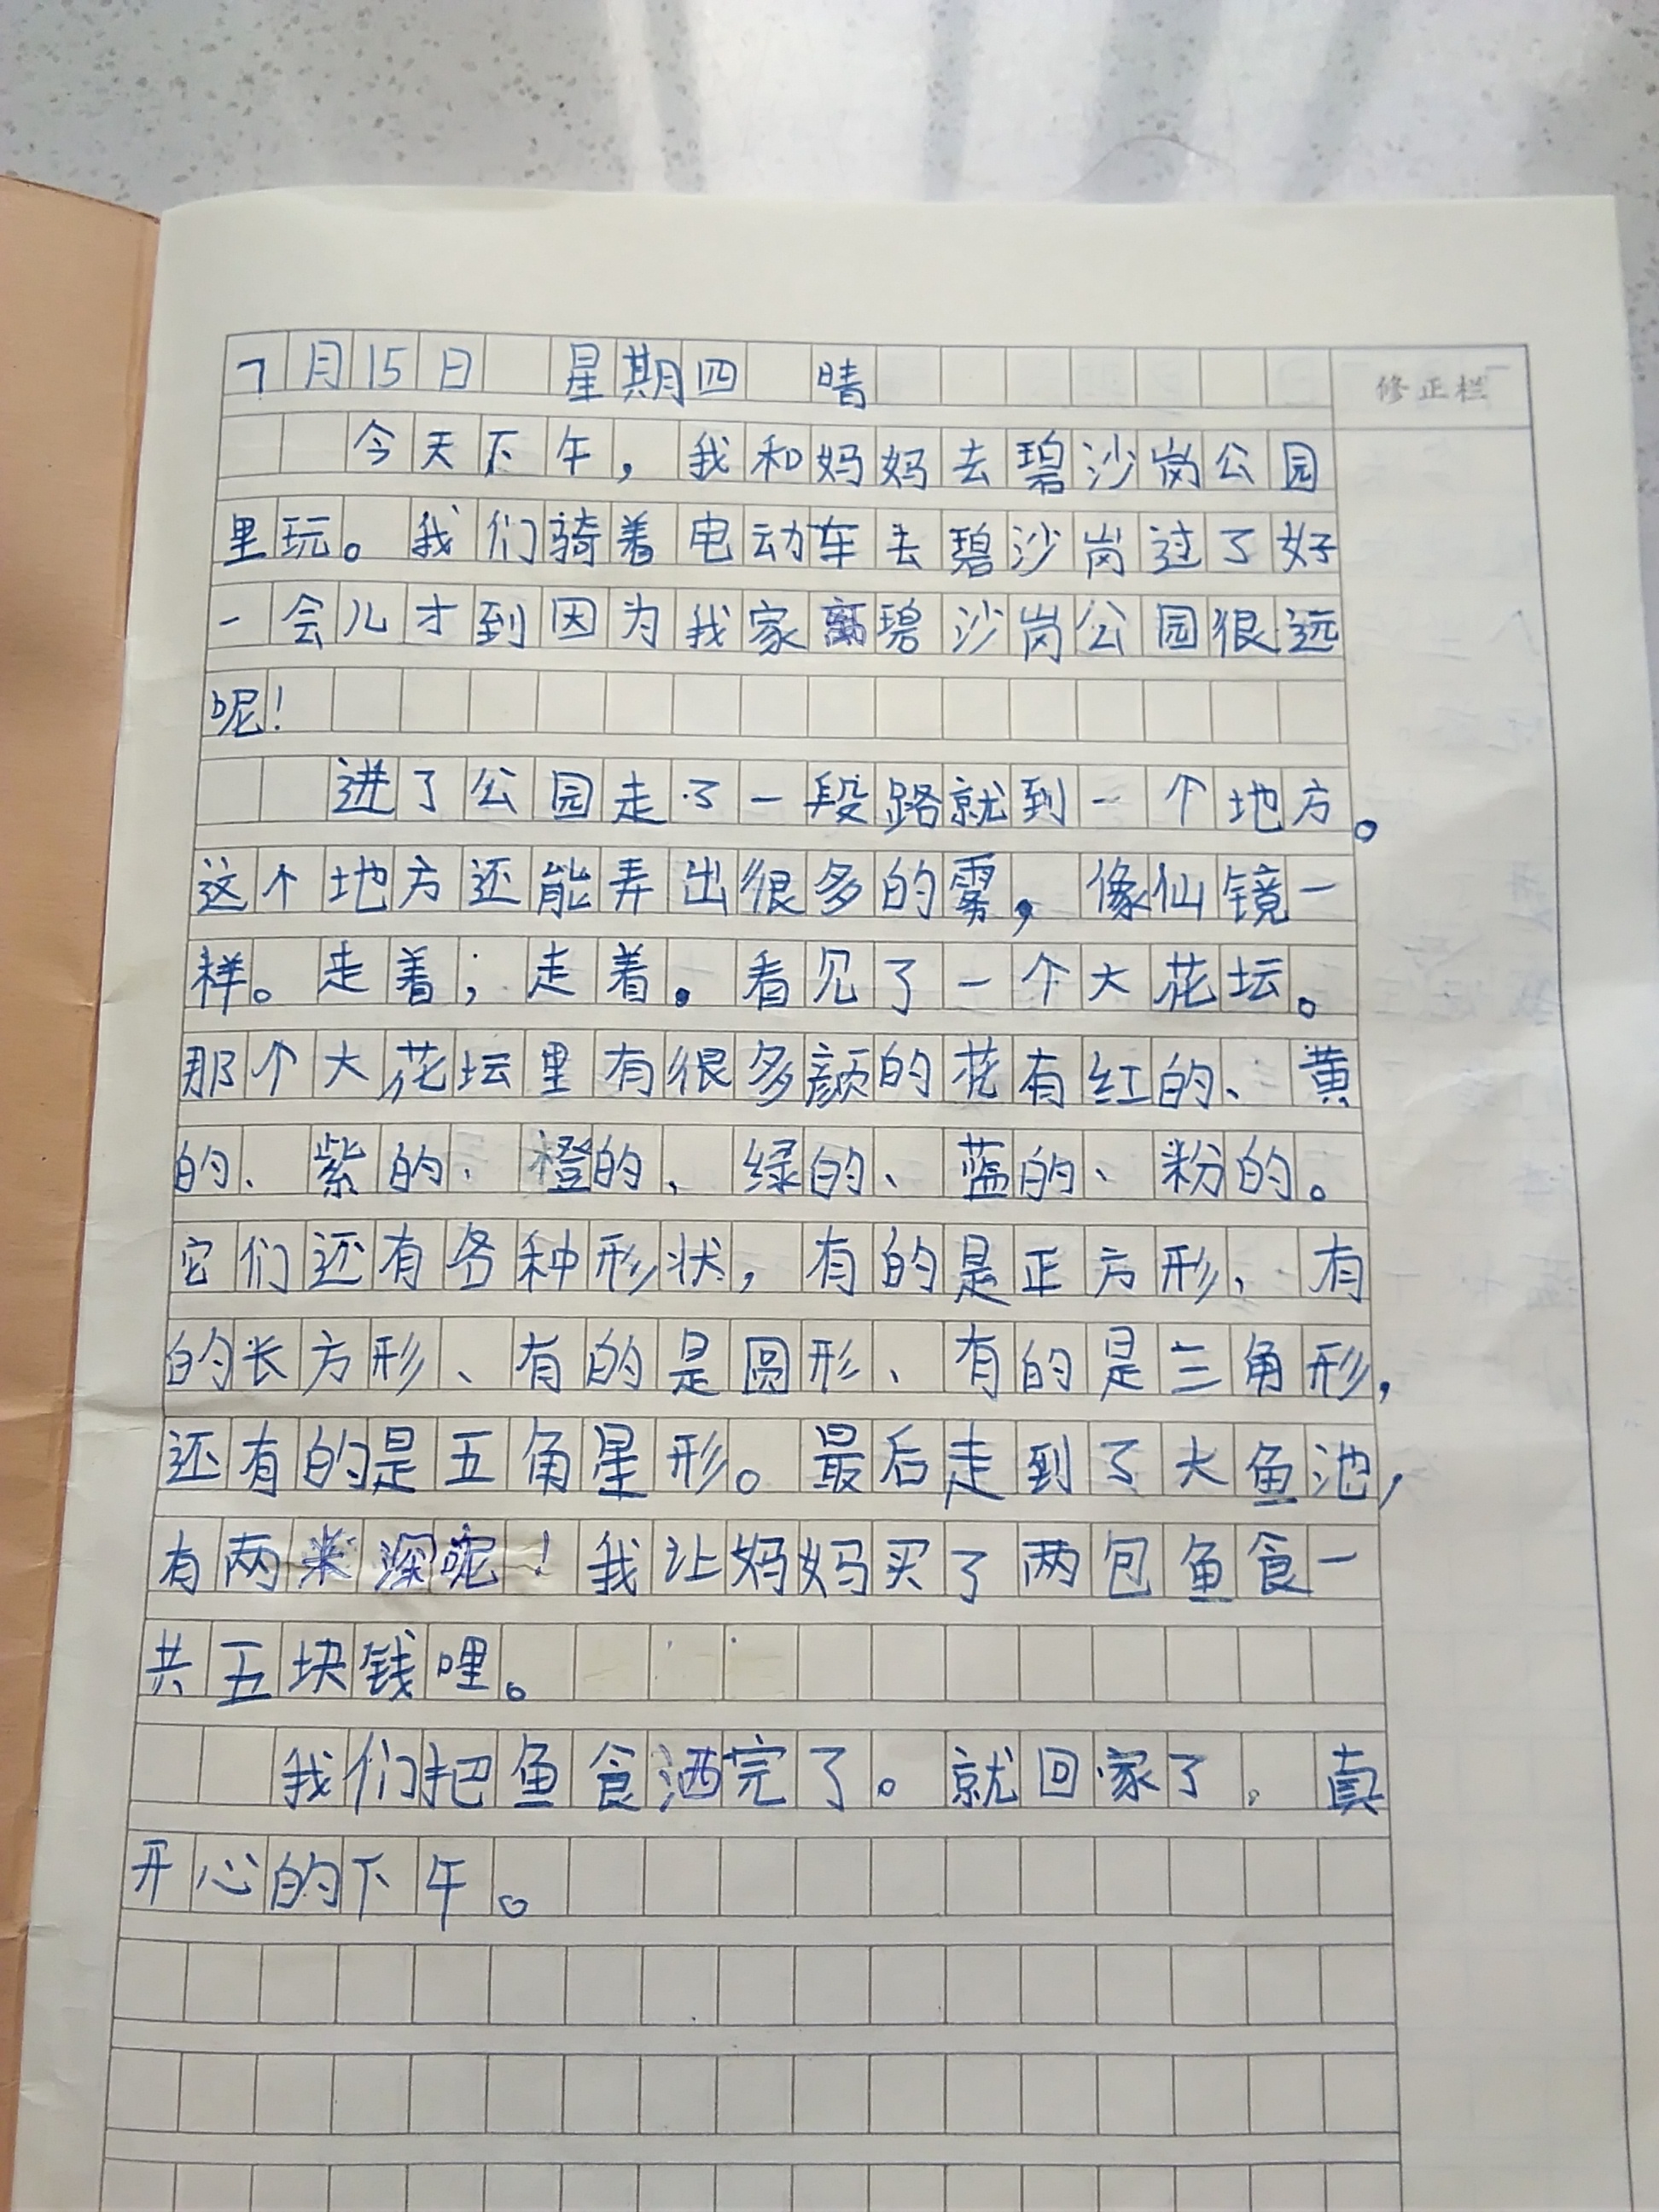 7月15日 星期四 晴
修正栏
今天下午，我和妈妈去碧沙岗公园
里玩。我们骑着电动车去碧沙岗过了好
一会儿才到因为我家离碧沙岗公园很远
呢！
进了公园走了一段路就到一个地方。
这个地方还能弄出很多的雾，像仙镜一
样。走着；走着。看见了一个大花坛。
那个大花坛里有很多颜的花有红的、黄
的、紫的、橙的、绿的、蓝的、粉的。
它们还有各种形状，有的是正方形、有
的长方形、有的是圆形、有的是三角形，
还有的是五角星形。最后走到了大鱼池，
有两米深呢！我让妈妈买了两包鱼食一
共五块钱哩。
我们把鱼食洒完了。就回家了。真
开心的下午。